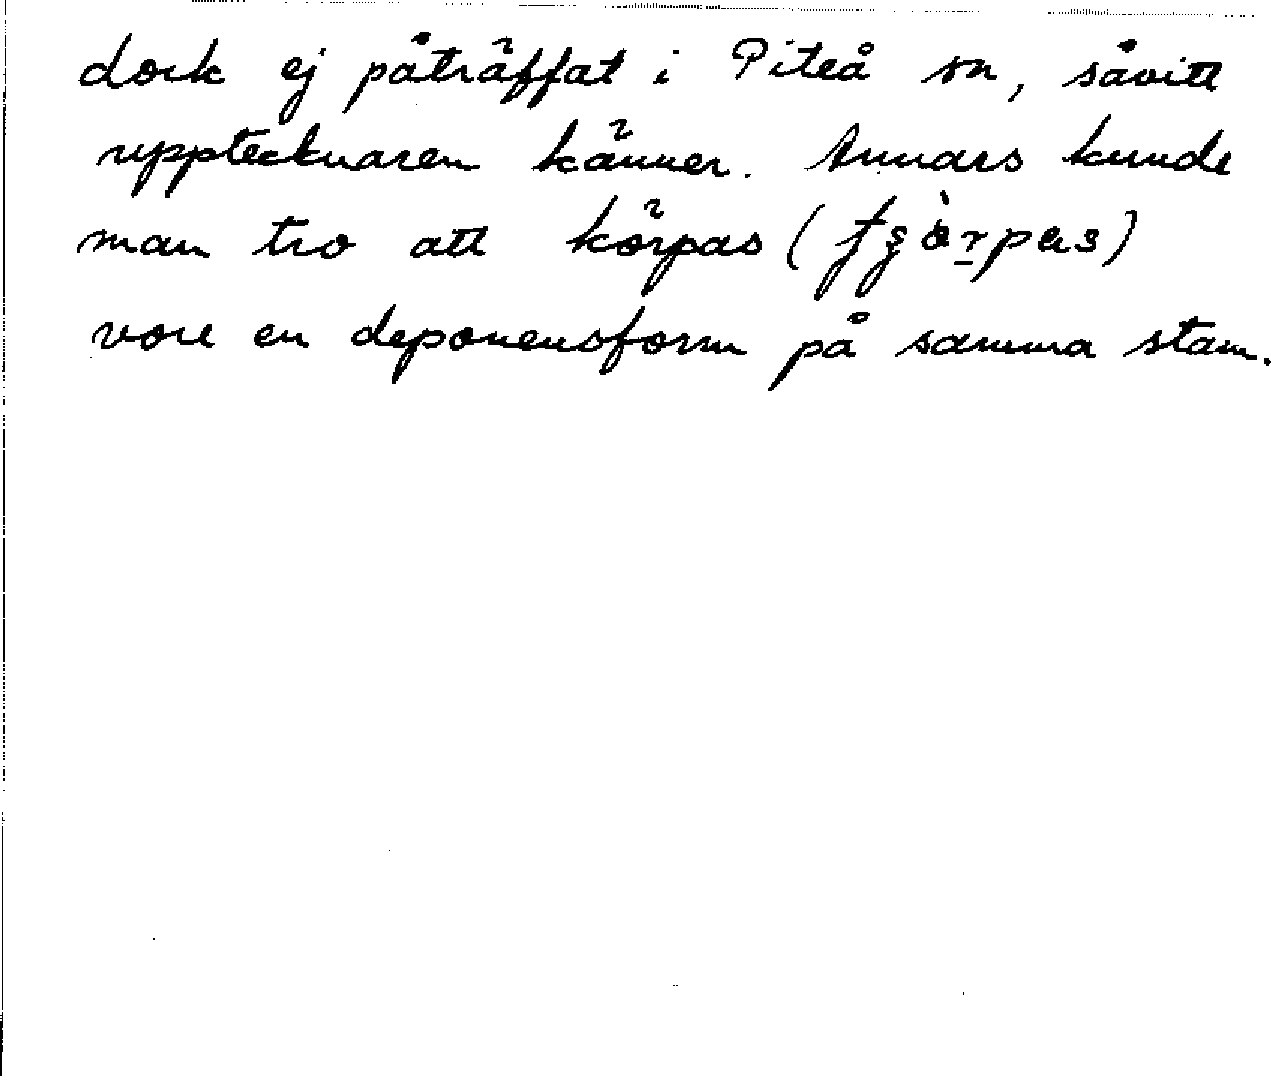 dock ej påträffat i Piteå sn, såvitt
upptecknaren känner. Annars kunde
man tro att körpas
vore en deponensform på samma stam.